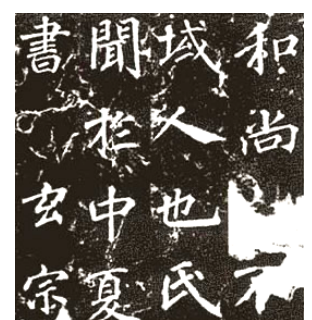 和尚不
域人也氏
聞於中夏
書玄宗